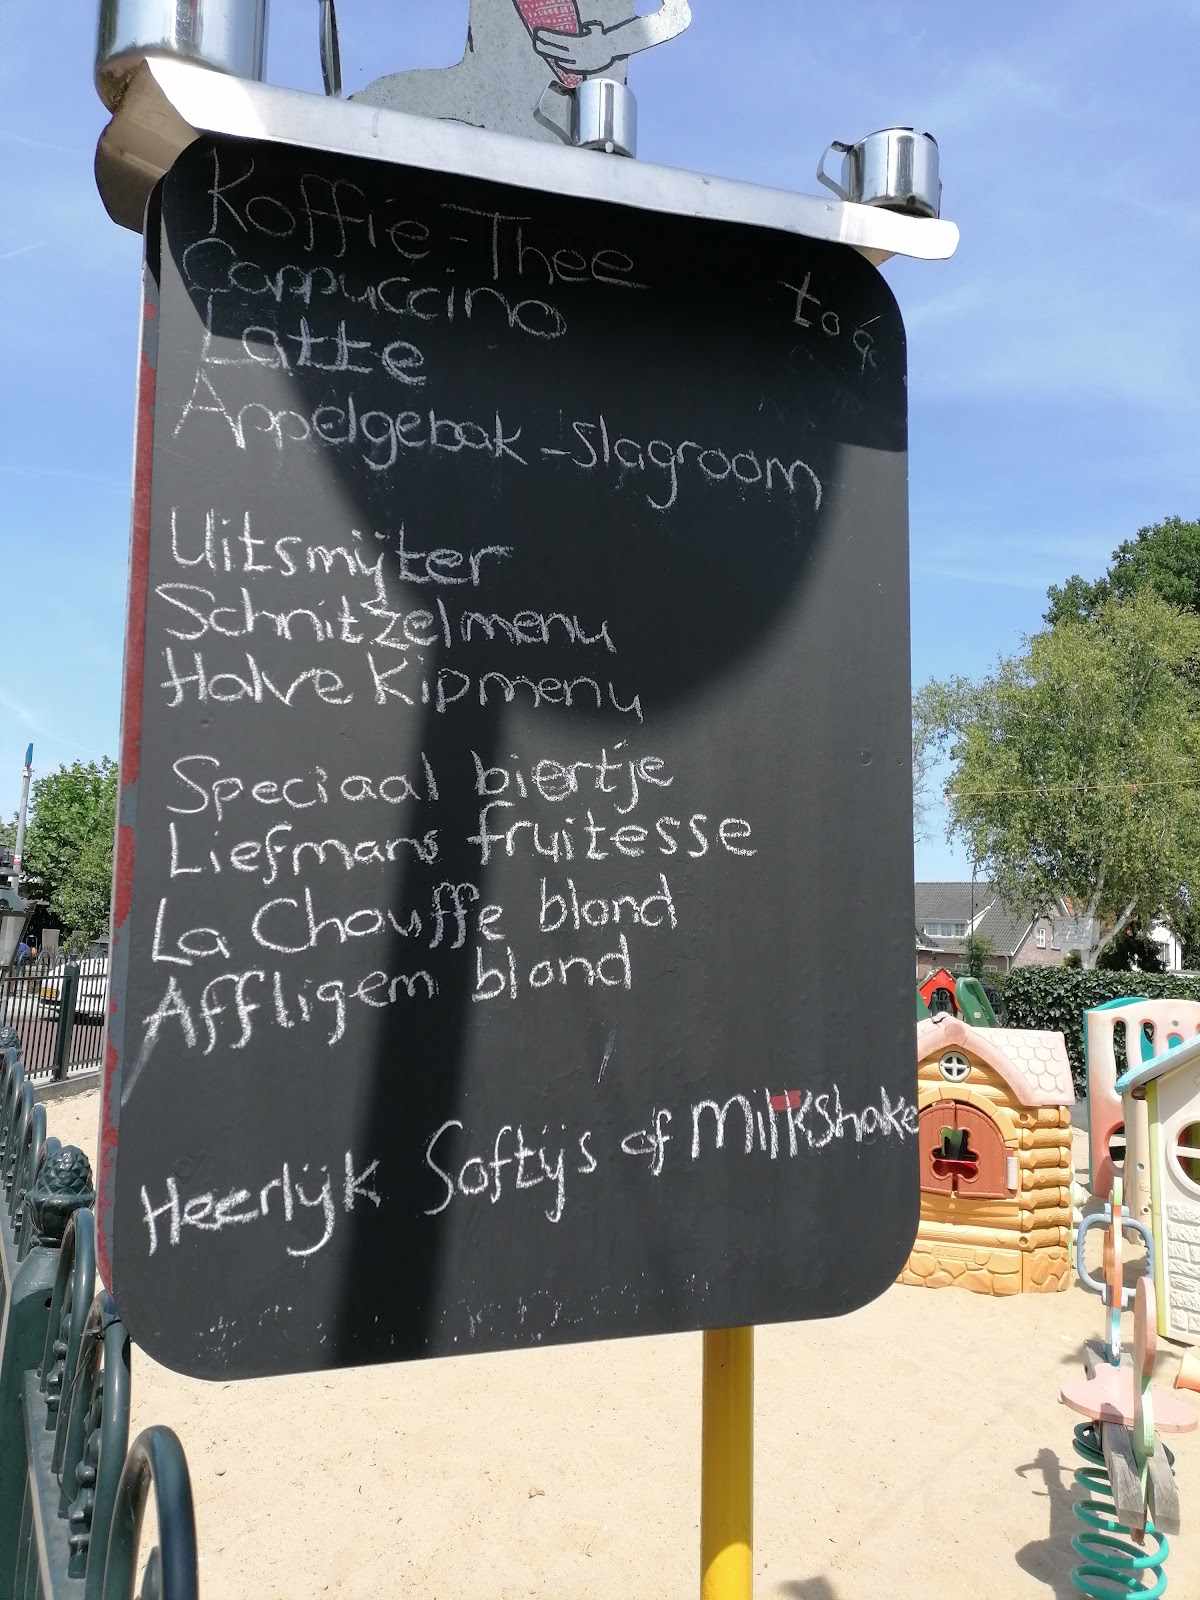 Koffie - Thee
to go
Cappuccino
Latte
Appelgebak - slagroom
Uitsmijter
Schnitzelmenu
Halve Kipmenu
Speciaal biertje
Liefmans fruitesse
La Chouffe blond
Affligem blond
Heerlijk Softijs of Milkshake